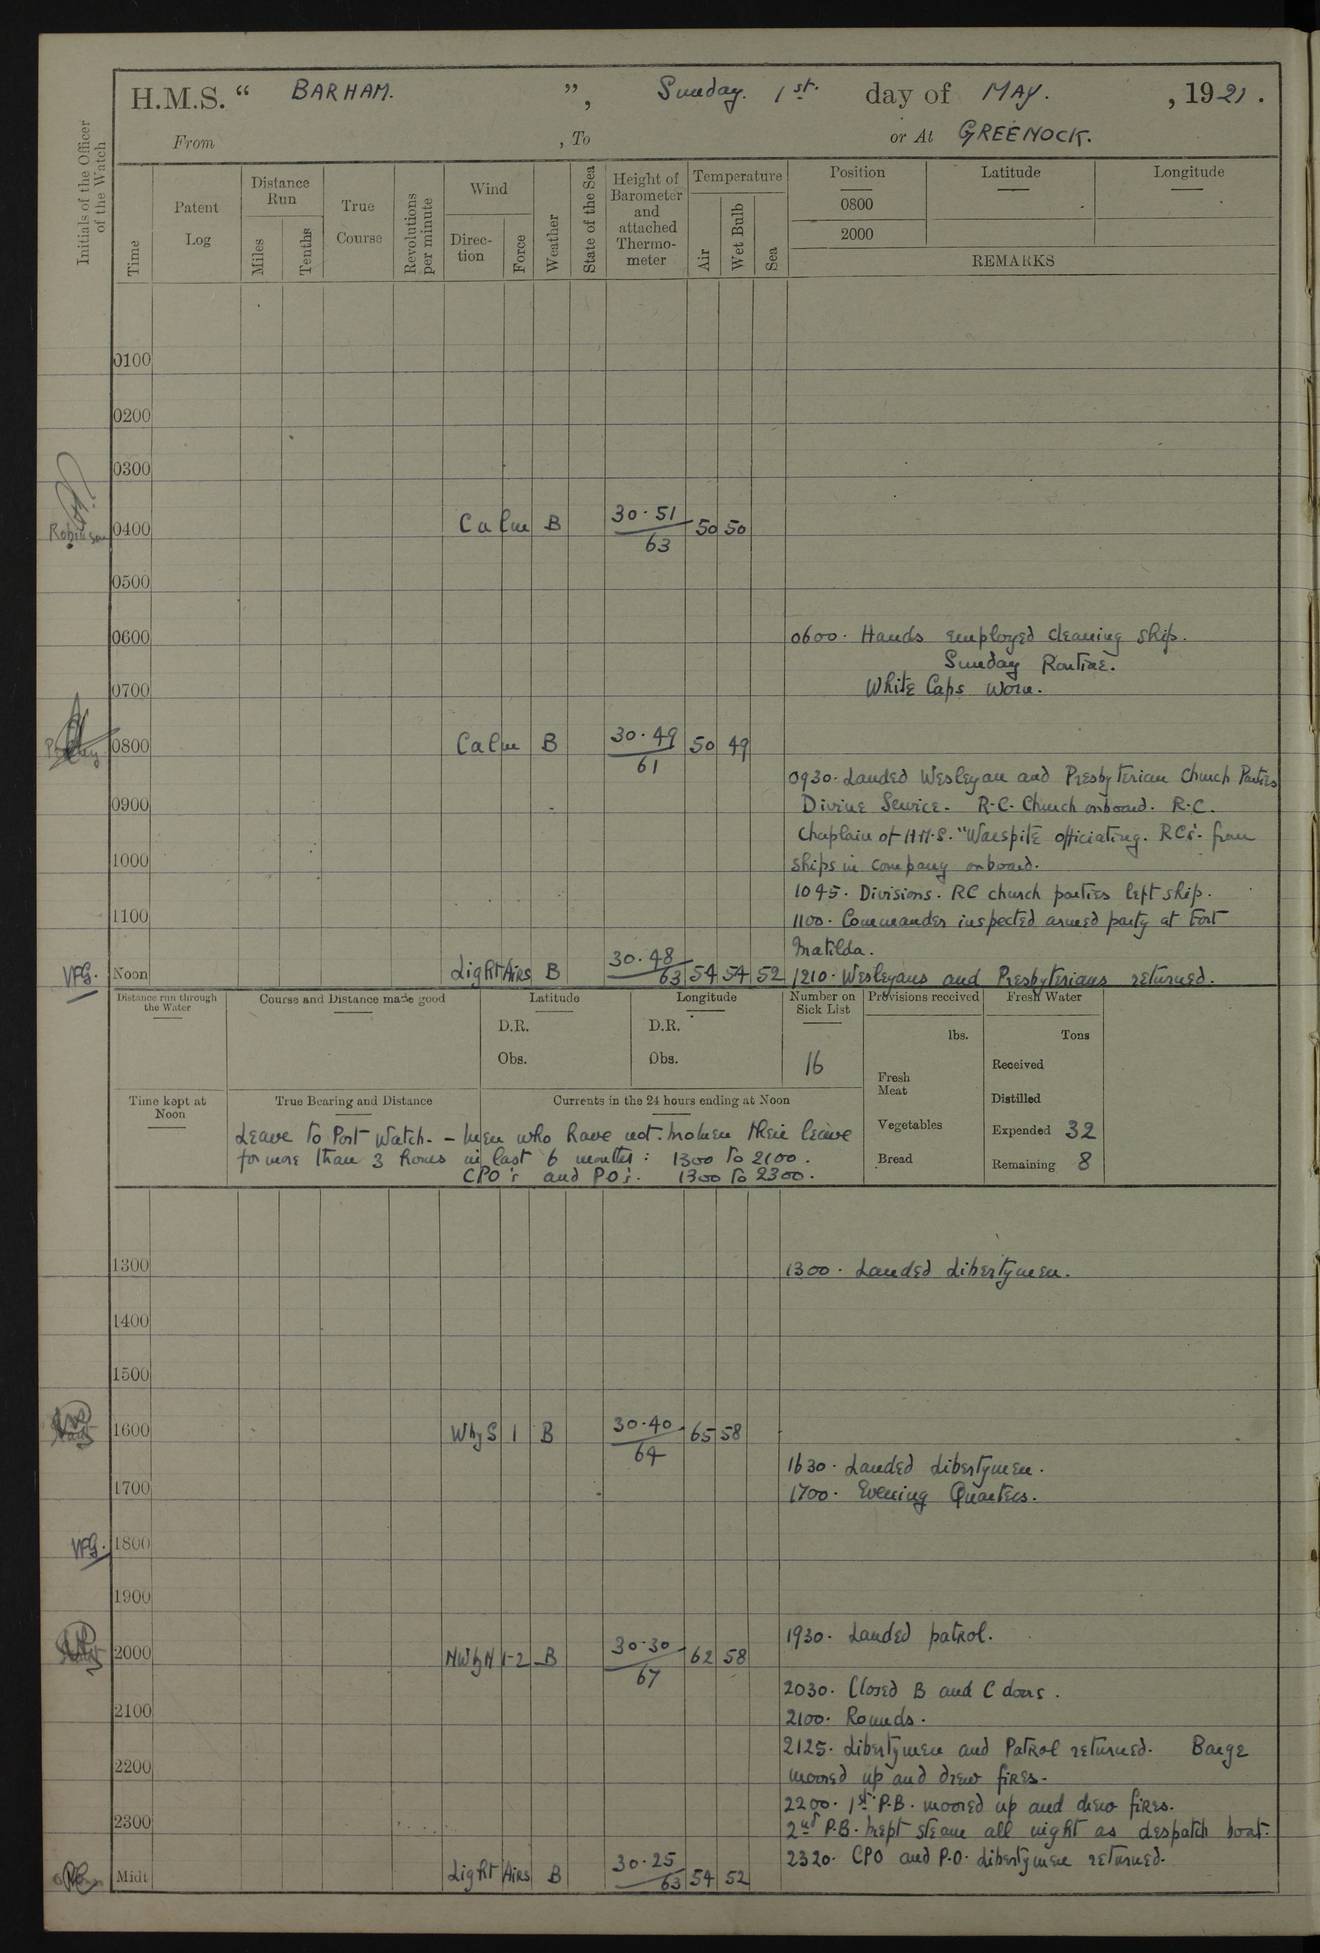 H.M.S. “ BARHAM. ”, Sunday. 1st. day of MAY. , 1921.
From , To or At GREENOCK.
Initials of the Officer of the Watch
Time
Patent Log
Distance Run
Miles
Tenths
True Course
Revolutions per minute
Wind
Direc-tion
Force
Weather
State of the Sea
Height of Barometer and attached Thermo-meter
Temperature
Air
Wet Bulb
Sea
Position
0800
2000
Latitude
Longitude
REMARKS
0100
0200
0300
Robinson 0400 Calm B 30.51 50 50
63
0500
0600 0600. Hands employed cleaning ship.
Sunday Routine.
0700 White Caps Worn.
0800 Calm B 30.49 50 49
61
0930. Landed Wesleyan and Presbyterian Church Parties
0900 Divine Service. R.C. Church onboard. R.C.
Chaplain of H.M.S. "Warspite officiating. RC's. from
1000 ships in company onboard.
1045. Divisions. RC church parties left ship.
1100 1100. Commander inspected armed party at Fort
Matilda.
VFG. Noon Light Airs B 30.48 54 54 52 1210. Wesleyans and Presbyterians returned.
63
Distance run through the Water
Course and Distance made good
Latitude
D.R.
Obs.
Longitude
D.R.
Obs.
Number on Sick List
16
Provisions received
lbs.
Fresh Meat
Vegetables
Bread
Fresh Water
Tons
Received
Distilled
Expended 32
Remaining 8
Time kept at Noon
True Bearing and Distance
Currents in the 24 hours ending at Noon
Leave to Port Watch. - Men who have not broken their leave
for more than 3 hours in last 6 months: 1300 to 2100.
CPO's and PO's. 1300 to 2300.
1300 1300. Landed Libertymen.
1400
1500
1600 WbyS 1 B 30.40 65 58
64
1630. Landed Libertymen.
1700 1700. Evening Quarters.
VFG. 1800
1900
1930. Landed patrol.
2000 NWbyN 1-2 B 30.30 62 58
67
2030. Closed B and C doors.
2100 2100. Rounds.
2125. Libertymen and Patrol returned. Barge
2200 moored up and drew fires.
2200. 1st P.B. moored up and drew fires.
2300 2nd P.B. kept steam all night as despatch boat.
2320. CPO and P.O. Libertymen returned.
Midt Light Airs B 30.25 54 52
63